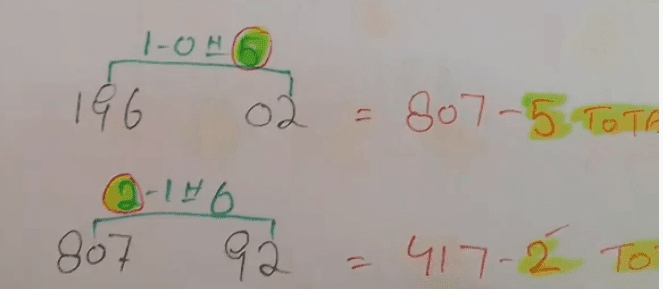 1-0 H 5
196 02 = 807-5 TOTA
2-1 H 6
807 92 = 417-2 TO